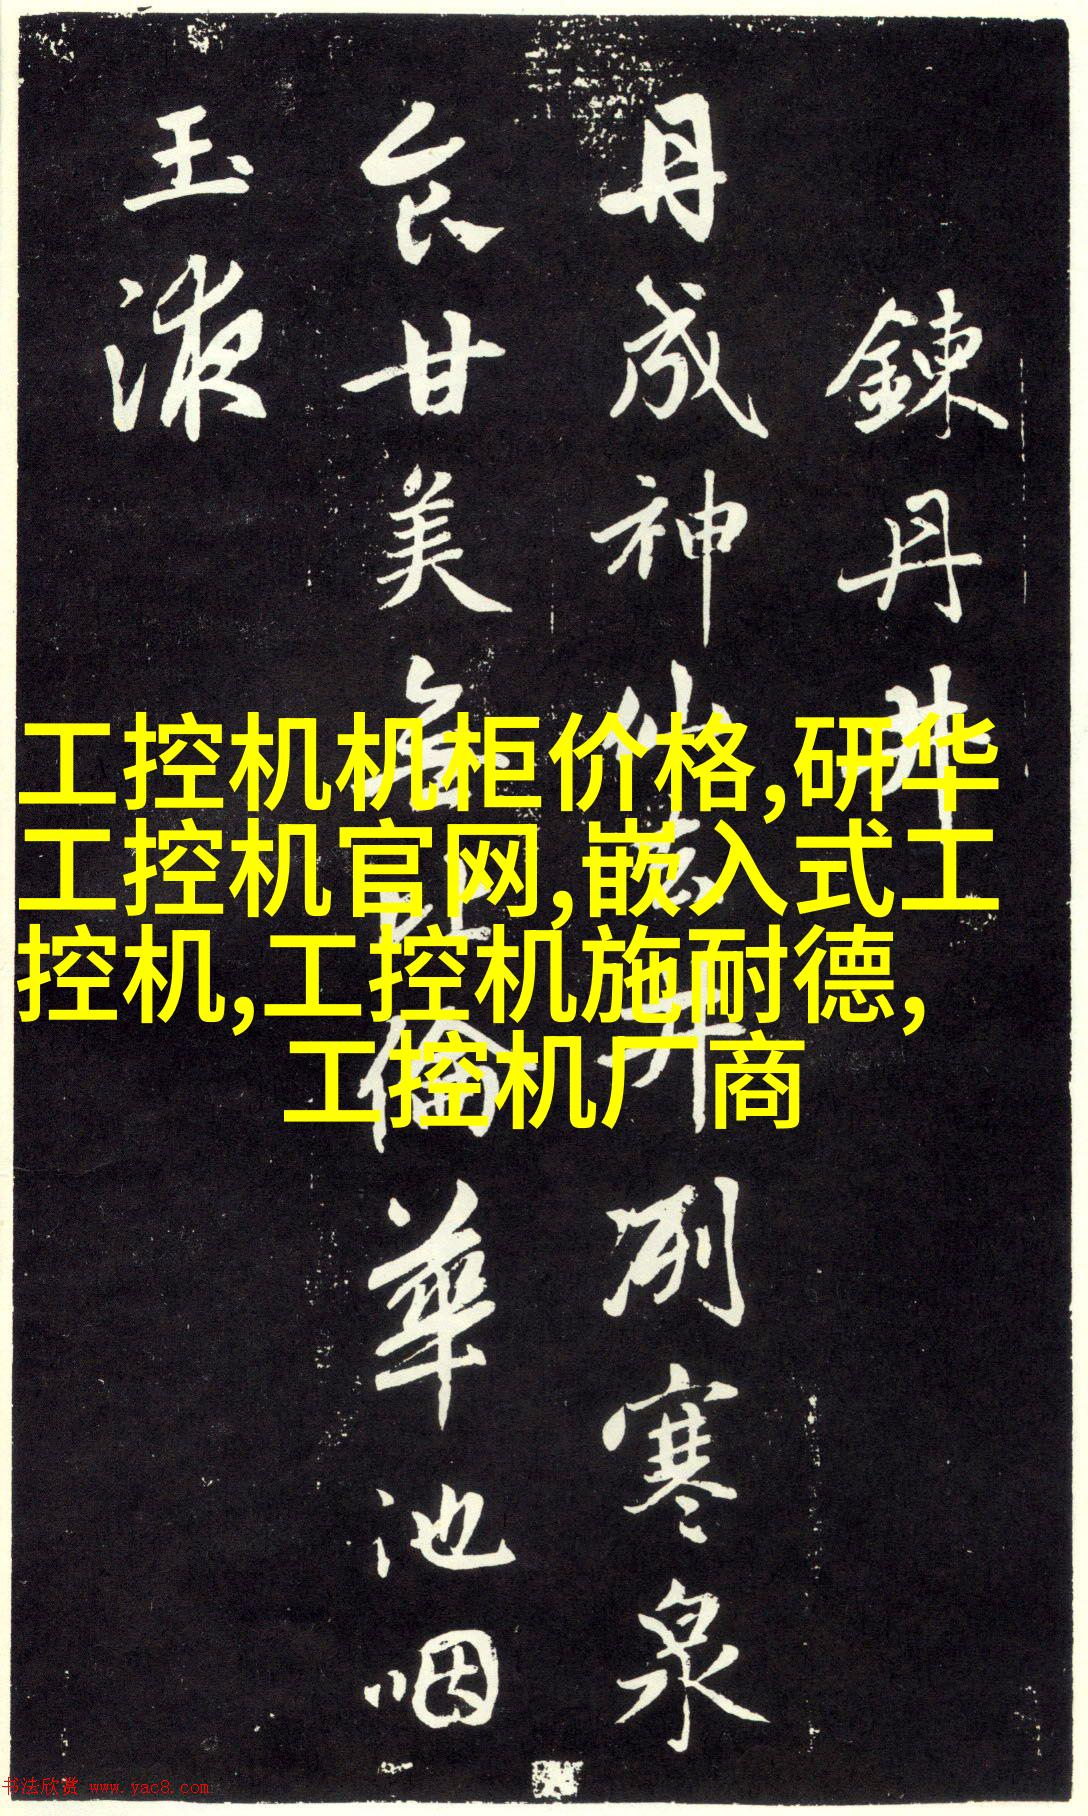 鍊丹井
丹成神仙去井冽寒泉
食甘美無比倫華池咽
玉液
工控机机柜价格,研华
工控机官网,嵌入式工
控机,工控机施耐德,
工控机厂商
书法欣赏 www.yac8.com